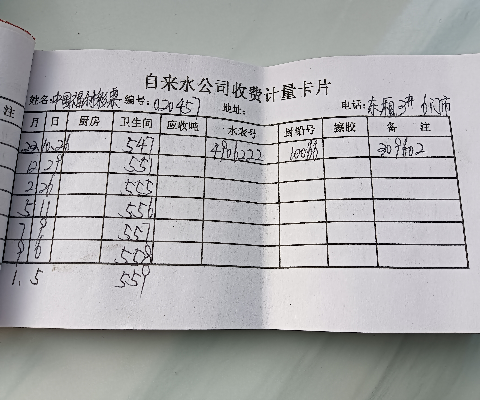 自来水公司收费计量卡片
姓名: 中国福利彩票 编号: 020457 地址: 电话: 东厢3#门市
注 月 日 厨房 卫生间 应收吨 水表号 封铅号 擦胶 备 注
22 10 26 547 4906222 309602
12 29 551
2 26 555
5 11 556
7 9 557
9 6 558
1. 5 559